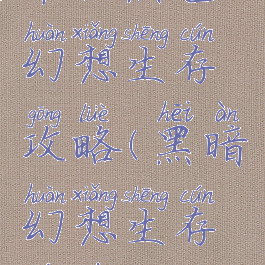 huàn xiǎng shēng cún
幻想生存
gōng lüè hēi àn
攻略(黑暗
huàn xiǎng shēng cún
幻想生存